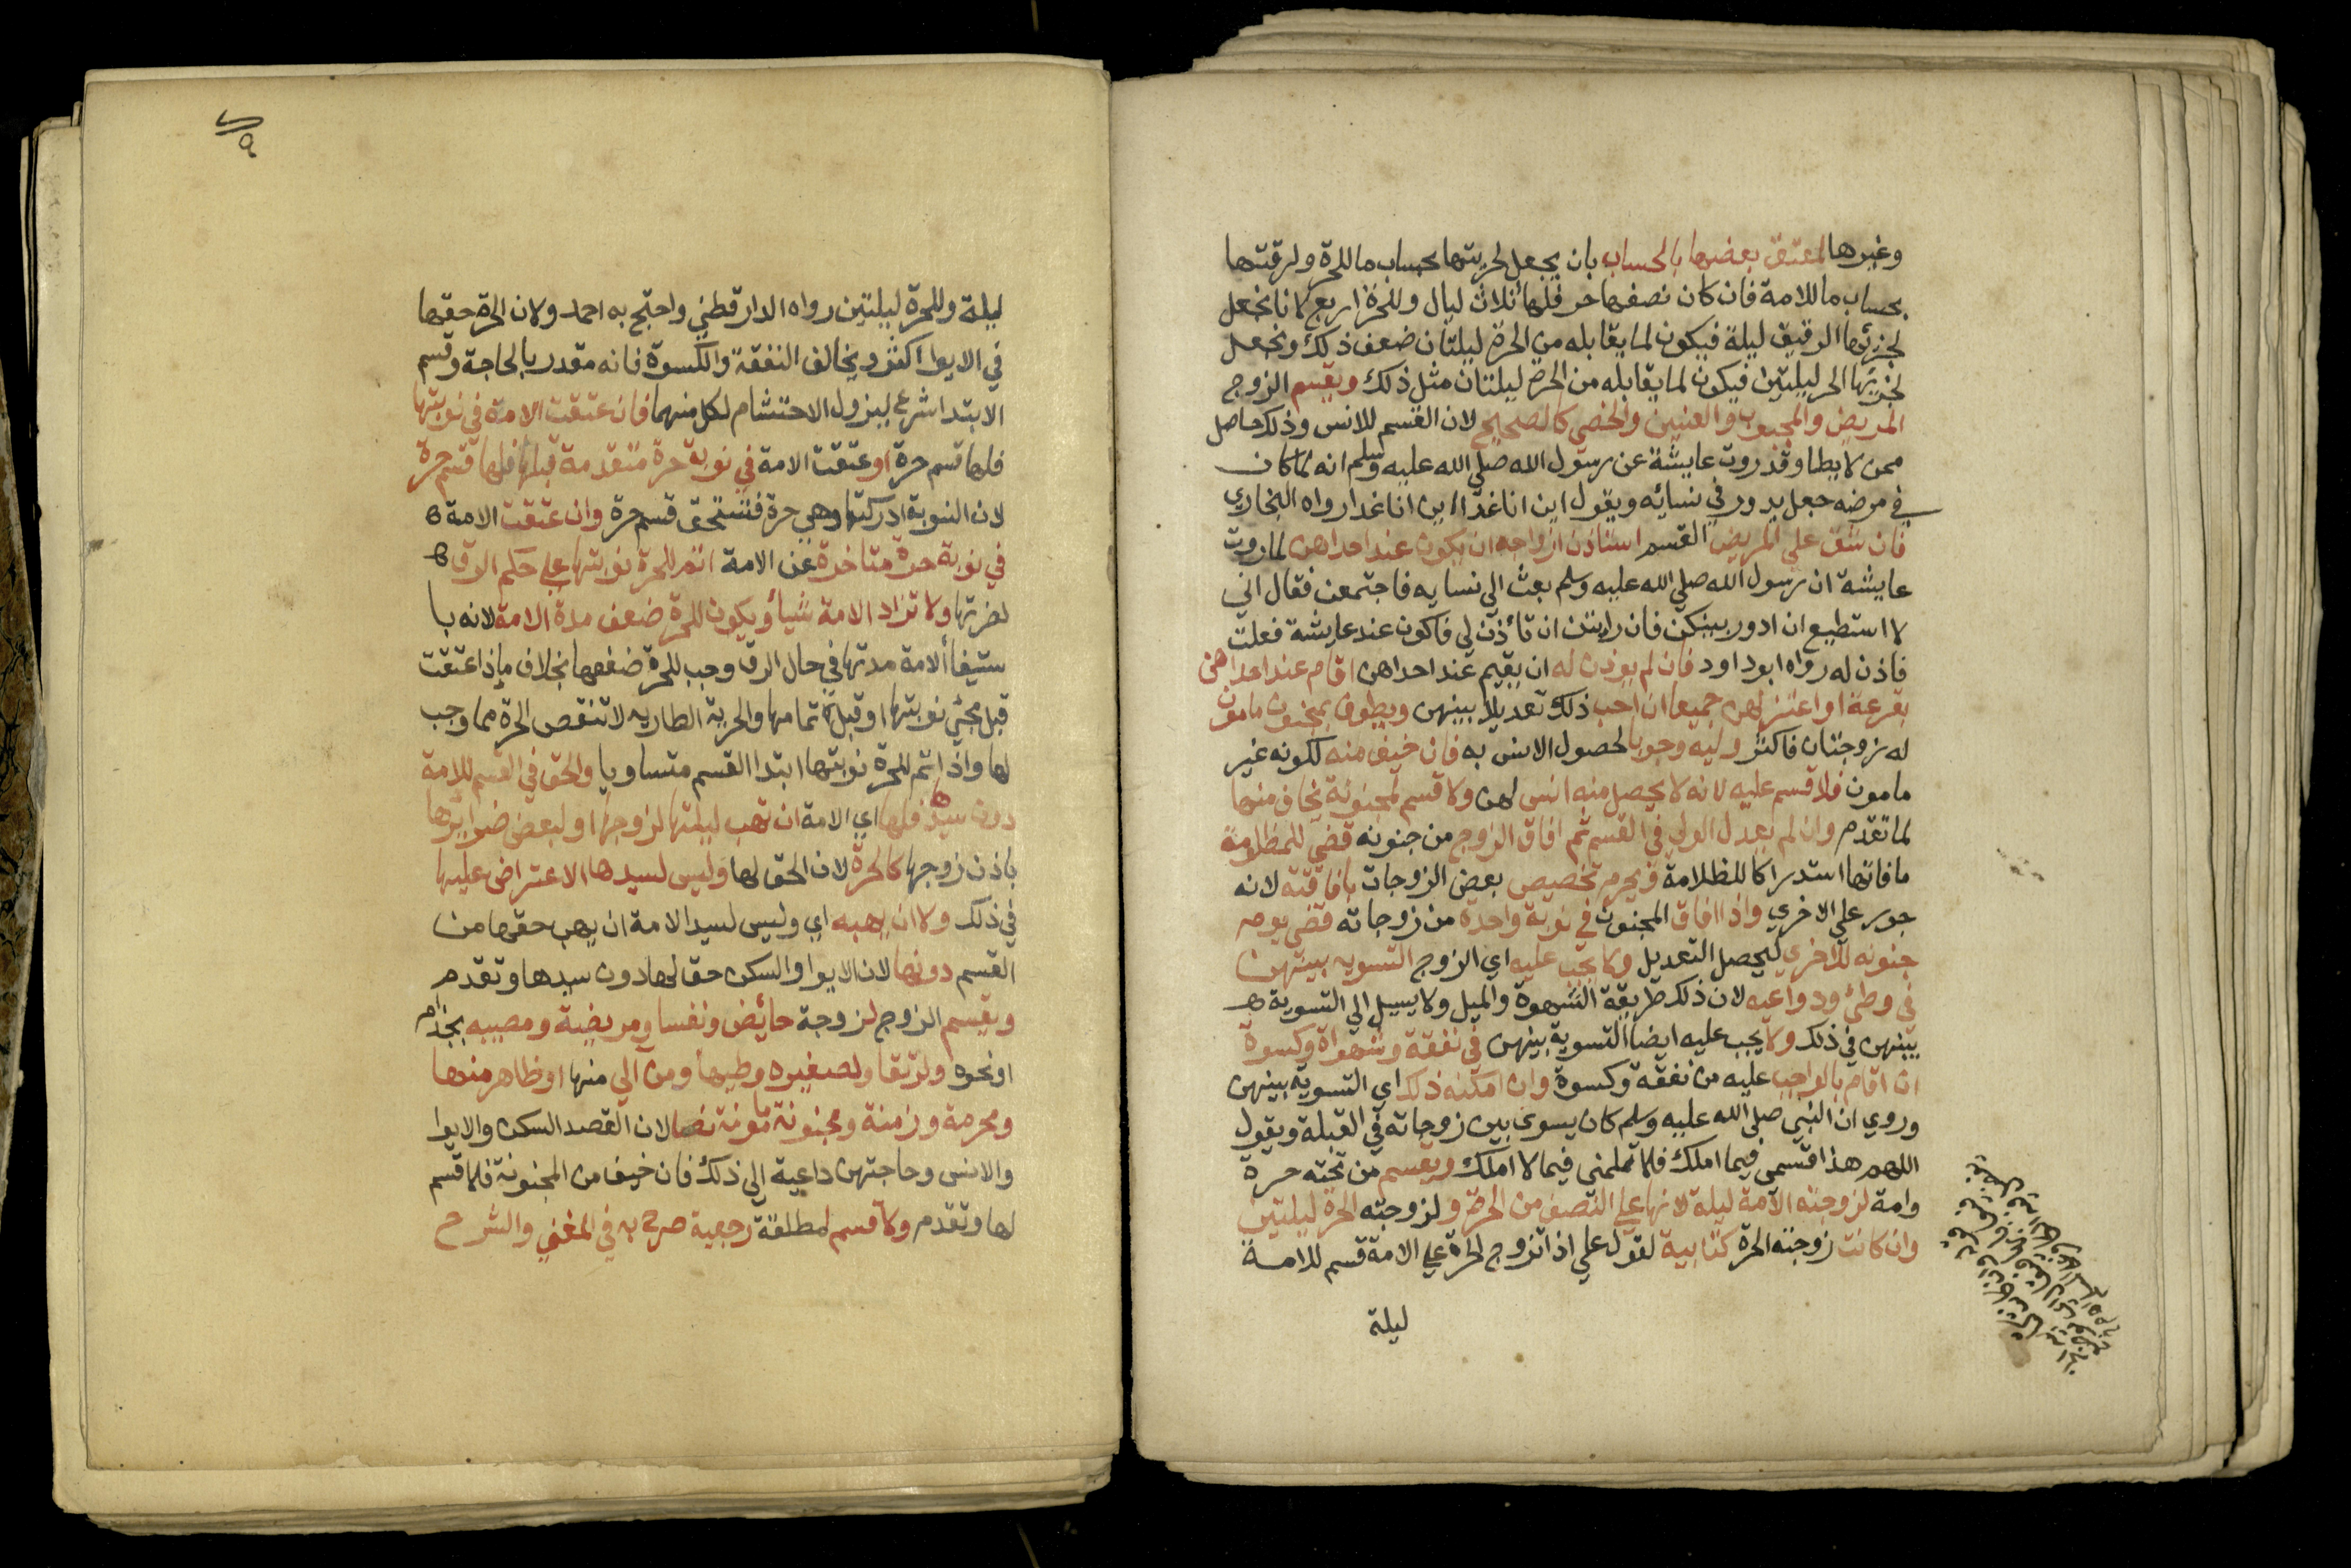 وغيرها المعتق بعضها بالحساب بان يجعل لحريتها بحساب ما للحرة ولرقيتها
بحساب ما للامة فان كان نصفها حر فلها ثلاث ليال وللحرة اربع لانا نجعل
لجزئها الرقيق ليلة فيكون لما يقابله من الحرة ليلتان ضعف ذلك ونجعل
لجزئها الحر ليلتين فيكون لما يقابله من الحرة ليلتان مثل ذلك ويقسم الزوج
المريض والمجبوب والعنين والخصي كالصحيح لان القسم للانس وذلك حاصل
ممن لا يطا وقد روت عايشة عن رسول الله صلي الله عليه وسلم انه لما كان
في مرضه جعل يدور في نسائه ويقول اين انا غدا اين انا غدا رواه البخاري
فان شق علي المريض القسم استاذن ازواجه ان يكون عند احداهن لما روت
عايشة ان رسول الله صلي الله عليه وسلم بعث الي نسايه فاجتمعن فقال اني
لا استطيع ان ادور بينكن فان رايتن ان تأذن لي فاكون عند عايشة فعلت
فاذن له رواه ابوداود فان لم يوذن له ان يقيم عند احداهن اقام عند احداهن
بقرعة او اعتزلهن جميعا ان احب ذلك تعديلا بينهن ويطوف بمجنون مامون
له زوجتان فاكثر وليه وجوبا لحصول الانس به فان خيف منه لكونه غير
مامون فلا قسم عليه لانه لا يحصل منه انس لهن ولا قسم لمجنونة يخاف منها
لما تقدم وان لم يعدل الولي في القسم ثم افاق الزوج من جنونه قضي للمظلومة
ما فاتها استدراكا للظلامة ويحرم تخصيص بعض الزوجات بافاقته لانه
جور علي الاخري واذا افاق المجنون في نوبة واحدة من زوجاته قضي يوم
جنونه للاخري ليحصل التعديل ولا يجب عليه اي الزوج التسويه بينهن
في وطئ ودواعيه لان ذلك طريقة الشهوة والميل ولا يسيل الي التسوية ه
بينهن في ذلك ولا يجب عليه ايضا التسوية بينهن في نفقة وشهواة وكسوة
ان اقام بالواجب عليه من نفقة وكسوة وان امكنه ذلك اي التسوية بينهن
وروي ان النبي صلي الله عليه وسلم كان يسوي بين زوجاته في القبلة ويقول
اللهم هذا قسمي فيما املك فلا تلمني فيما لا املك ويقسم من تحته حرة
وامة لزوجته الامة ليلة لانها علي النصف من الحرة ولزوجته الحرة ليلتين
وان كانت زوجته الحرة كتابية لقول علي اذا تزوج الحرة علي الامة قسم للامة
ليلة
ليلة وللحرة ليلتين رواه الدارقطني واحتج به احمد ولان الحرة حقها
في الايوا اكثر ويخالف النفقة والكسوة فانه مقدر بالحاجة وقسم
الابتدا شرع ليزول الاحتشام لكل منهما فان عتقت الامة في نوبتها
فلها قسم حرة او عتقت الامة في نوبة حرة متقدمة قبلها فلها قسم حرة
لان النوبة ادركتها وهي حرة فتستحق قسم حرة وان عتقت الامة ه
في نوبة حرة متاخرة عن الامة اتم للحرة نوبتها علي حكم الرق ه
لضرتها ولا تزاد الامة شيأ ويكون للحرة ضعف مدة الامة لانه با
ستيفأ الامة مدتها في حال الرق وجب للحرة ضعفها بخلاف ما اذا عتقت
قبل مجئ نوبتها او قبل تمامها والحرية الطاريه لا تنقص الحرة مما وجب
لها واذا تم للحرة نوبتها ابتدا القسم متساويا والحق في القسم للامة
دون سيدها فلها اي الامة ان تهب ليلتها لزوجها او لبعض ضرايرها
باذن زوجها كالحرة لان الحق لها وليس لسيدها الاعتراض عليها
في ذلك ولا ان يهبه اي وليس لسيد الامة ان يهب حقها من
القسم دونها لان الايوا والسكن حق لها دون سيدها وتقدم
ويقسم الزوج لزوجة حائض ونفسا ومريضة ومعيبه بجذام
او نحوه ولرتقا ولصغيره وطيها ومن الي منها او ظاهر منها
ومحرمة وزمنة ومجنونة مامونة نصا لان القصد السكن والايوا
والانس وحاجتهن داعية الي ذلك فان خيف من المجنونة فلا قسم
لها وتقدم ولا قسم لمطلقة رجعية صرح به في المغني والشرح